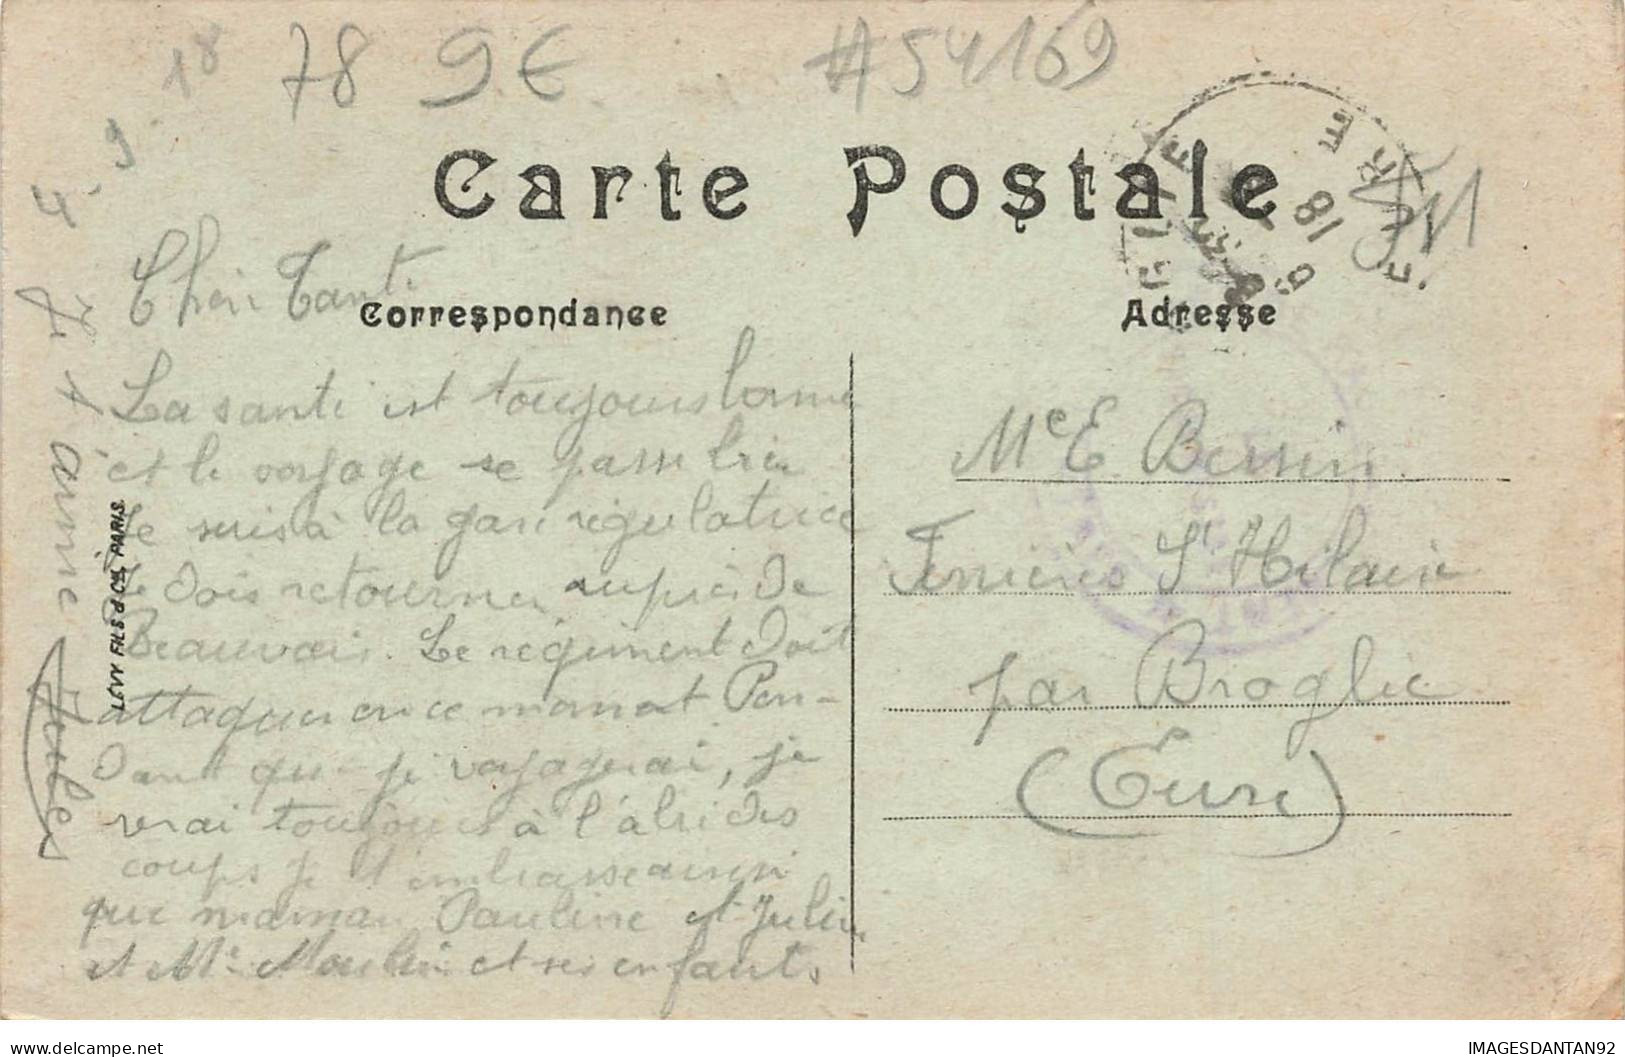 18 78 9€ #54169
4-9-
Carte Postale
EURE
18
Chère Tante
Correspondance
Adresse
La santé est toujours bonne
et le voyage se passe bien
Je suis à la gare régulatrice
Je dois retourner auprès de
Beauvais. Le régiment doit
attaquer en ce moment. Pen-
dant que je voyagerai, je
serai toujours à l'abri des
coups je t'embrasse ainsi
que maman Pauline et Julien
et Me Moulin et ses enfants.
Je t'aime Jules
LEVY FILS & Cie PARIS
Me E Bessin
Ferrières St Hilaire
par Broglie
(Eure)
IMAGESDANTAN92